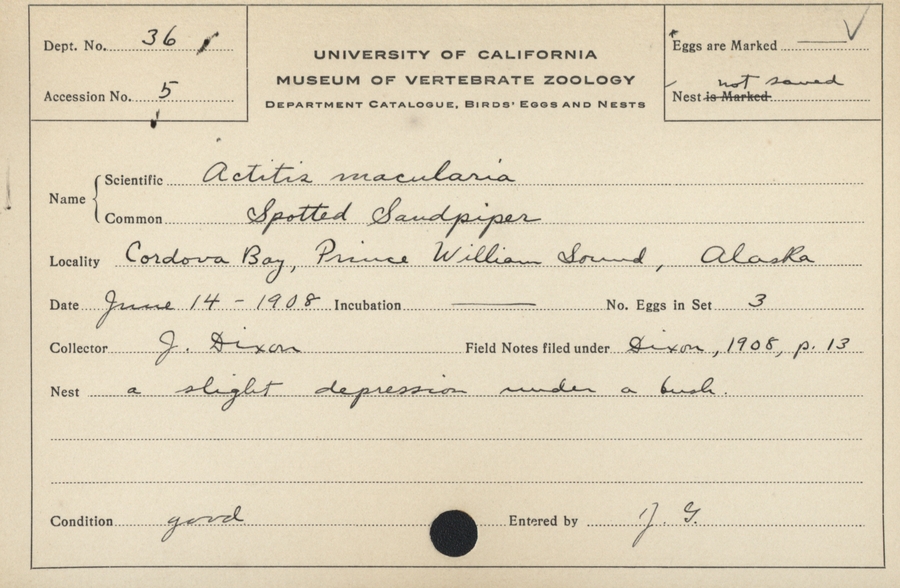 Dept. No. 36
UNIVERSITY OF CALIFORNIA
MUSEUM OF VERTEBRATE ZOOLOGY
DEPARTMENT CATALOGUE, BIRDS' EGGS AND NESTS
Eggs are Marked ✓
Accession No. 5
not saved
Nest is Marked
Name { Scientific Actitis macularia
Common Spotted Sandpiper
Locality Cordova Bay, Prince William Sound, Alaska
Date June 14 - 1908 Incubation — No. Eggs in Set 3
Collector J. Dixon Field Notes filed under Dixon, 1908, p. 13
Nest a slight depression under a bush.
Condition good Entered by J. G.